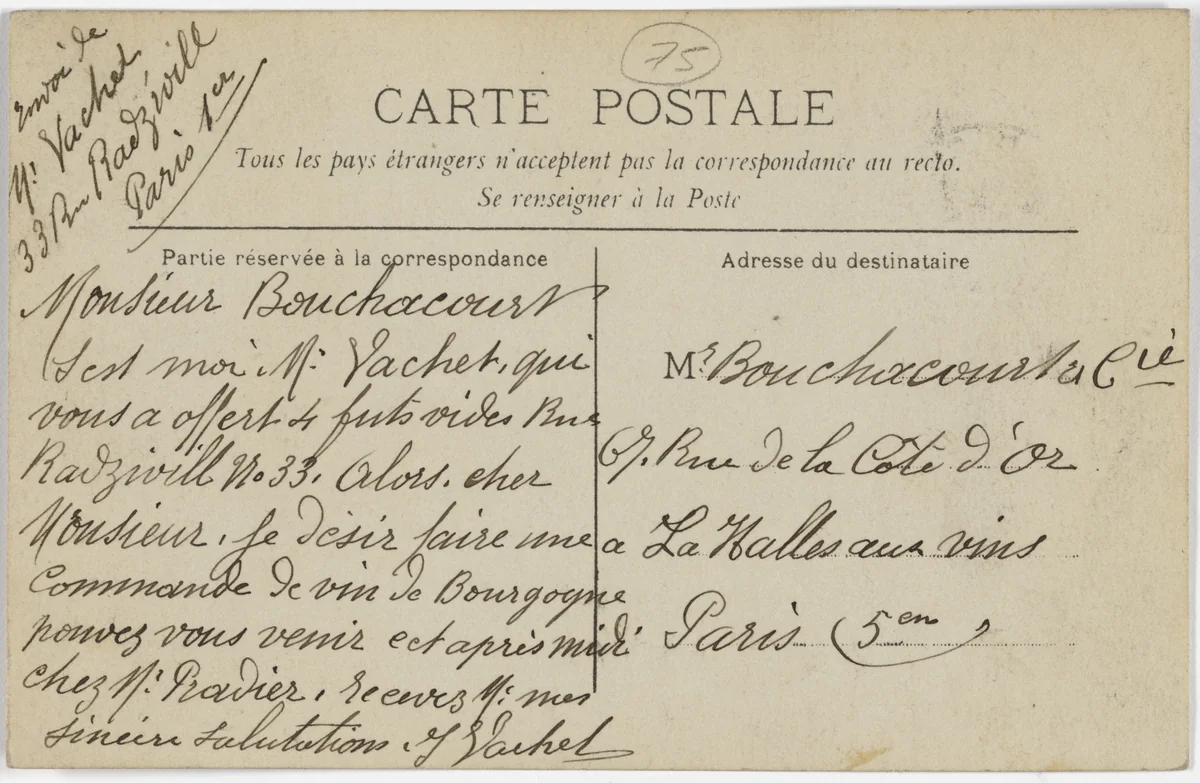 75
Envoi de
Mr Vachet
33 Ru Radziwill
Paris 1er
CARTE POSTALE
Tous les pays étrangers n'acceptent pas la correspondance au recto.
Se renseigner à la Poste
Partie réservée à la correspondance
Monsieur Bouchacourt
Sest moi. Mr Vachet, qui
vous a offert 4 futs vides Rue
Radziwill No 33. Alors. cher
Monsieur. Je désir faire une
Commande de vin de Bourgogne
pouvez vous venir cet après midi
chez Mr Pradier. recevez Mr mes
sincère salutations. J Vachet
Adresse du destinataire
Mr Bouchacourt & Cie
67. Rue de la Côte d'Or
a La Halles aux vins
Paris (5em)